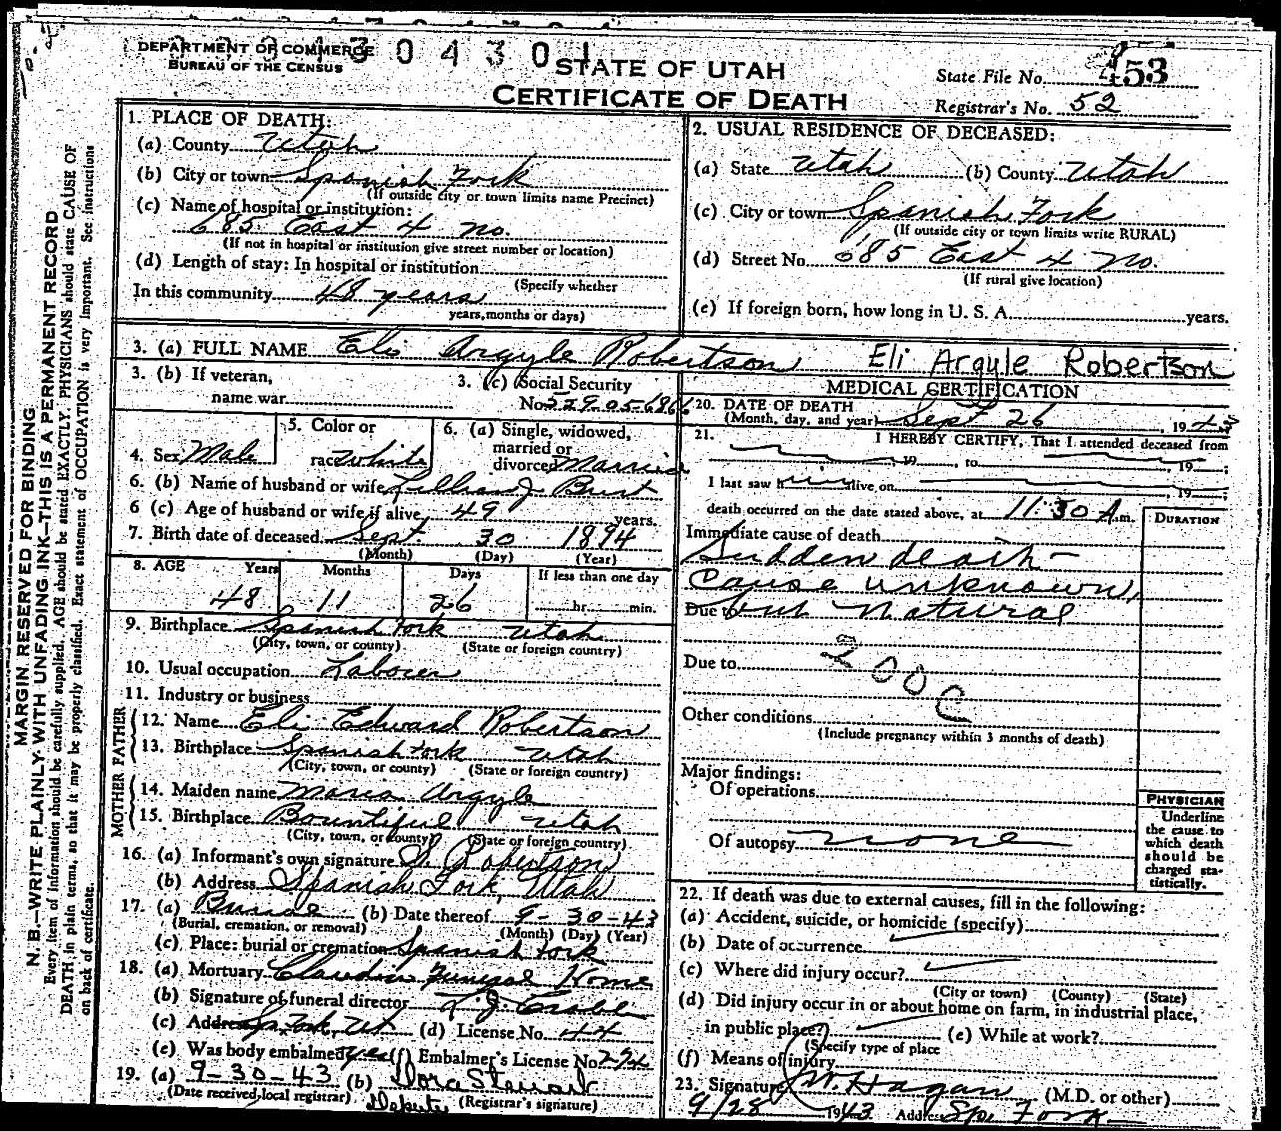 DEPARTMENT OF COMMERCE
BUREAU OF THE CENSUS
304301
STATE OF UTAH
CERTIFICATE OF DEATH
State File No. 453
Registrar's No. 52
MARGIN RESERVED FOR BINDING
N. B.—WRITE PLAINLY, WITH UNFADING INK—THIS IS A PERMANENT RECORD
Every item of information should be carefully supplied. AGE should be stated EXACTLY. PHYSICIANS should state CAUSE OF
DEATH in plain terms, so that it may be properly classified. Exact statement of OCCUPATION is very important. See instructions
on back of certificate.
1. PLACE OF DEATH:
(a) County Utah
(b) City or town Spanish Fork
(If outside city or town limits name Precinct)
(c) Name of hospital or institution:
685 East 4 No.
(If not in hospital or institution give street number or location)
(d) Length of stay: In hospital or institution
(Specify whether
In this community 48 years
years, months or days)
2. USUAL RESIDENCE OF DECEASED:
(a) State Utah (b) County Utah
(c) City or town Spanish Fork
(If outside city or town limits write RURAL)
(d) Street No. 685 East 4 No.
(If rural give location)
(e) If foreign born, how long in U. S. A. years.
3. (a) FULL NAME Eli Argyle Robertson Eli Argyle Robertson
3. (b) If veteran,
name war
3. (c) Social Security
No. 529-05-6866
4. Sex Male
5. Color or
race White
6. (a) Single, widowed,
married or
divorced Married
6. (b) Name of husband or wife Lillian J. Burt
6 (c) Age of husband or wife if alive 49 years.
7. Birth date of deceased Sept 30 1894
(Month) (Day) (Year)
8. AGE Years Months Days If less than one day
48 11 26 hr. min.
9. Birthplace Spanish Fork Utah
(City, town, or county) (State or foreign country)
10. Usual occupation Laborer
11. Industry or business
FATHER
12. Name Eli Edward Robertson
13. Birthplace Spanish Fork Utah
(City, town, or county) (State or foreign country)
MOTHER
14. Maiden name Maria Argyle
15. Birthplace Bountiful Utah
(City, town, or county) (State or foreign country)
16. (a) Informant's own signature Robertson
(b) Address Spanish Fork, Utah
17. (a) Burial (b) Date thereof 9-30-43
(Burial, cremation, or removal) (Month) (Day) (Year)
(c) Place: burial or cremation Spanish Fork
18. (a) Mortuary Claudin Funeral Home
(b) Signature of funeral director
(c) Address Sp. Fork, Ut. (d) License No. 44
(e) Was body embalmed yes (f) Embalmer's License No.
19. (a) 9-30-43 (b) Dora
(Date received local registrar) Deputy (Registrar's signature)
MEDICAL CERTIFICATION
20. DATE OF DEATH
(Month, day, and year) Sept 26, 1943
21. I HEREBY CERTIFY, That I attended deceased from
19 , to 19 ;
I last saw h alive on 19
death occurred on the date stated above, at 11:30 A.m.
DURATION
Immediate cause of death
Sudden death—
Cause unknown,
Due to but natural
Due to
200c
Other conditions
(Include pregnancy within 3 months of death)
Major findings:
Of operations
Of autopsy none
PHYSICIAN
Underline
the cause to
which death
should be
charged sta-
tistically.
22. If death was due to external causes, fill in the following:
(a) Accident, suicide, or homicide (specify)
(b) Date of occurrence
(c) Where did injury occur?
(City or town) (County) (State)
(d) Did injury occur in or about home on farm, in industrial place,
in public place? (e) While at work?
(Specify type of place
(f) Means of injury
23. Signature W. Hagan (M.D. or other)
9/28 1943 Address Sp. Fork